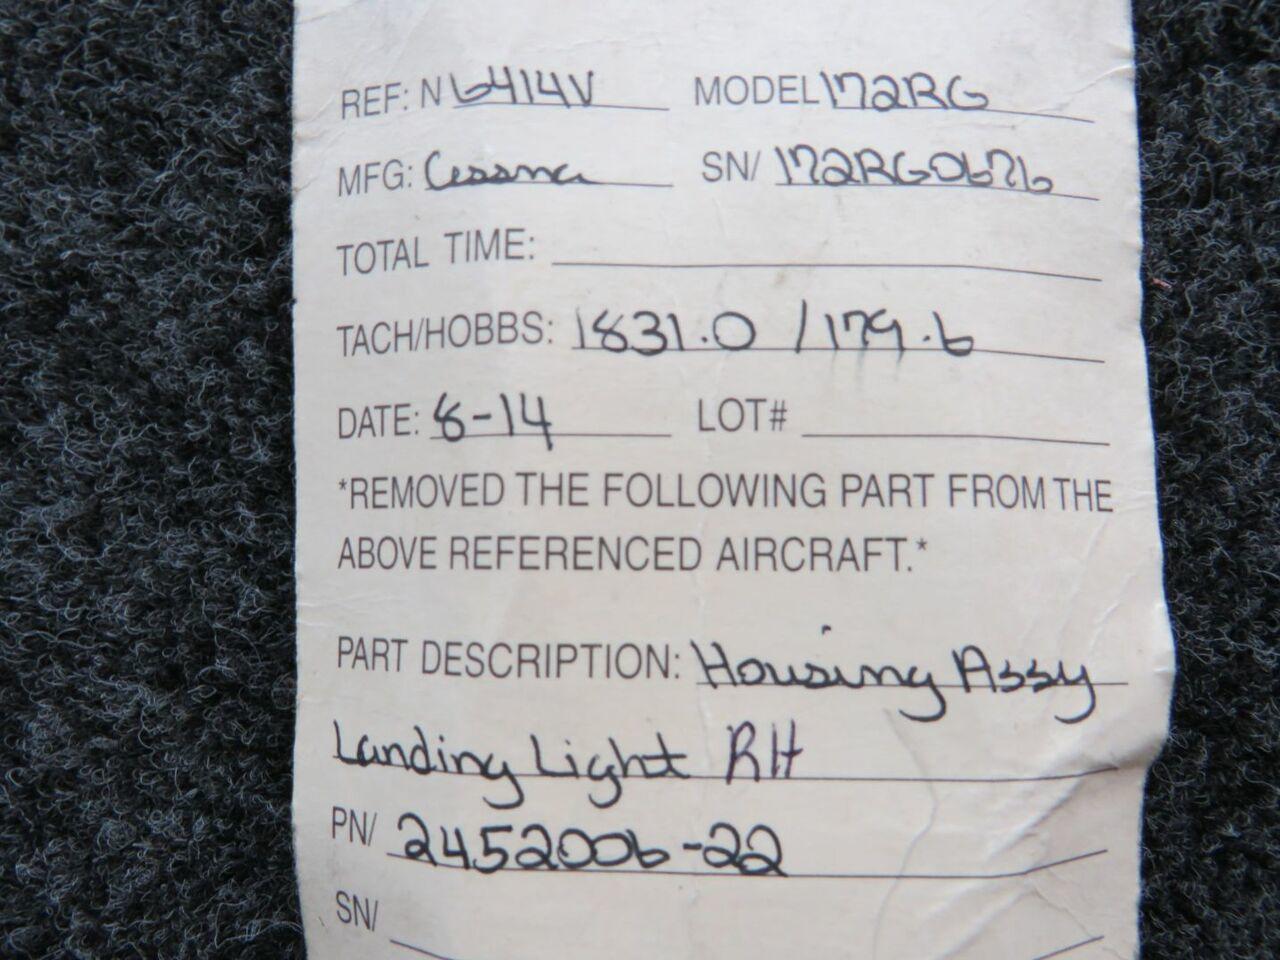 REF: N 6414V MODEL 172RG
MFG: Cessna SN/ 172RG0676
TOTAL TIME:
TACH/HOBBS: 1831.0 / 179.6
DATE: 8-14 LOT#
*REMOVED THE FOLLOWING PART FROM THE
ABOVE REFERENCED AIRCRAFT.*
PART DESCRIPTION: Housing Assy
Landing Light RH
PN/ 2452006-22
SN/